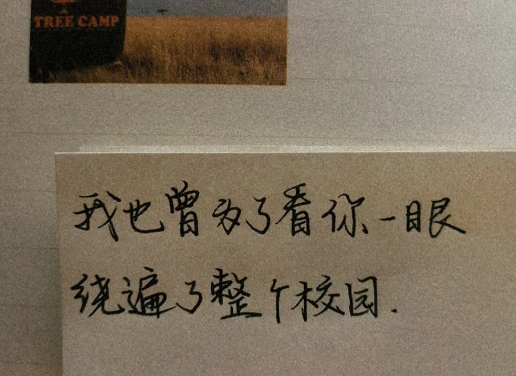 TREE CAMP
我也曾为了看你一眼
绕遍了整个校园.